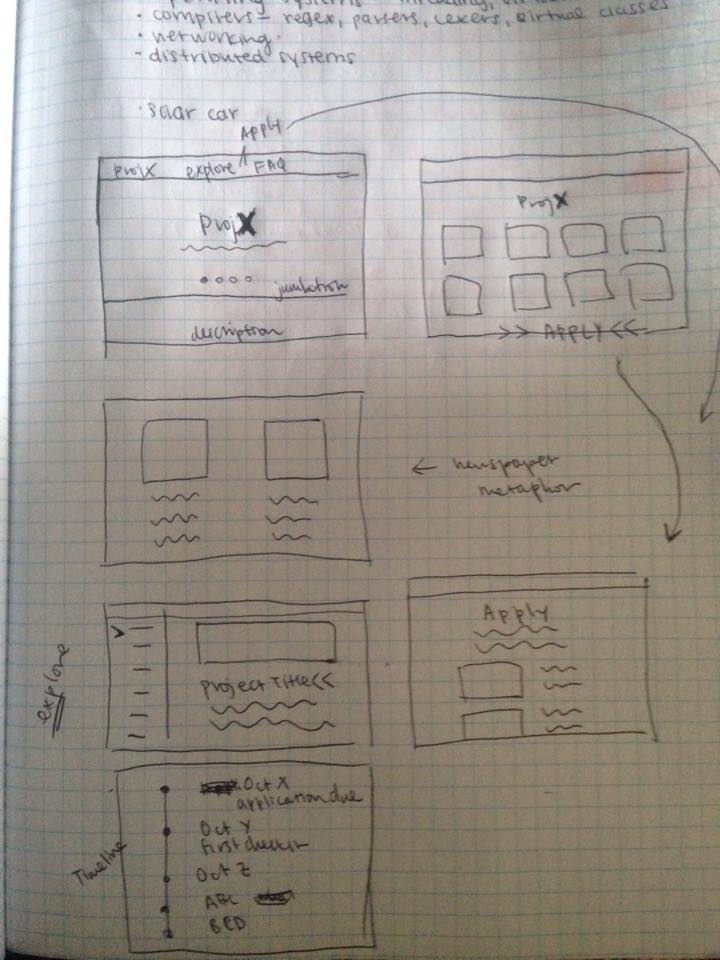 compilers - regex, parsers, lexers, virtual classes
· networking
- distributed systems
· solar car
APPLY
projX explore FAQ
ProjX
jumbotron
description
ProjX
>> APPLY <<
← newspaper
metaphor
explore
>
project Title <<
Apply
Timeline
Oct X
application due
Oct Y
first checkin
Oct Z
ABC
BED